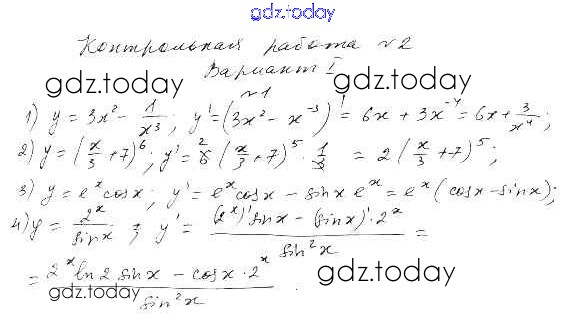 gdz.today
Контрольная работа №2
Вариант I
gdz.today gdz.today
№1
1) y = 3x² - 1/x³; y' = (3x² - x⁻³)' = 6x + 3x⁻⁴ = 6x + 3/x⁴;
2) y = (x/3 + 7)⁶; y' = 6 2 (x/3 + 7)⁵ · 1/3 = 2(x/3 + 7)⁵;
3) y = eˣcosx; y' = eˣcosx - sinx eˣ = eˣ(cosx - sinx);
4) y = 2ˣ/sinx; y' = ((2ˣ)'sinx - (sinx)'·2ˣ)/sin²x =
= (2ˣ ln2 sinx - cosx·2ˣ)/sin²x.
gdz.today gdz.today